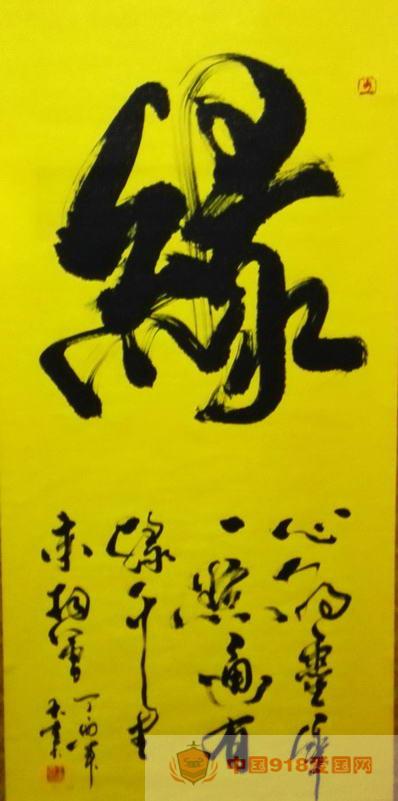 緣
心有靈犀
一點通有
緣千里
来相會
丁酉年
中国918爱国网